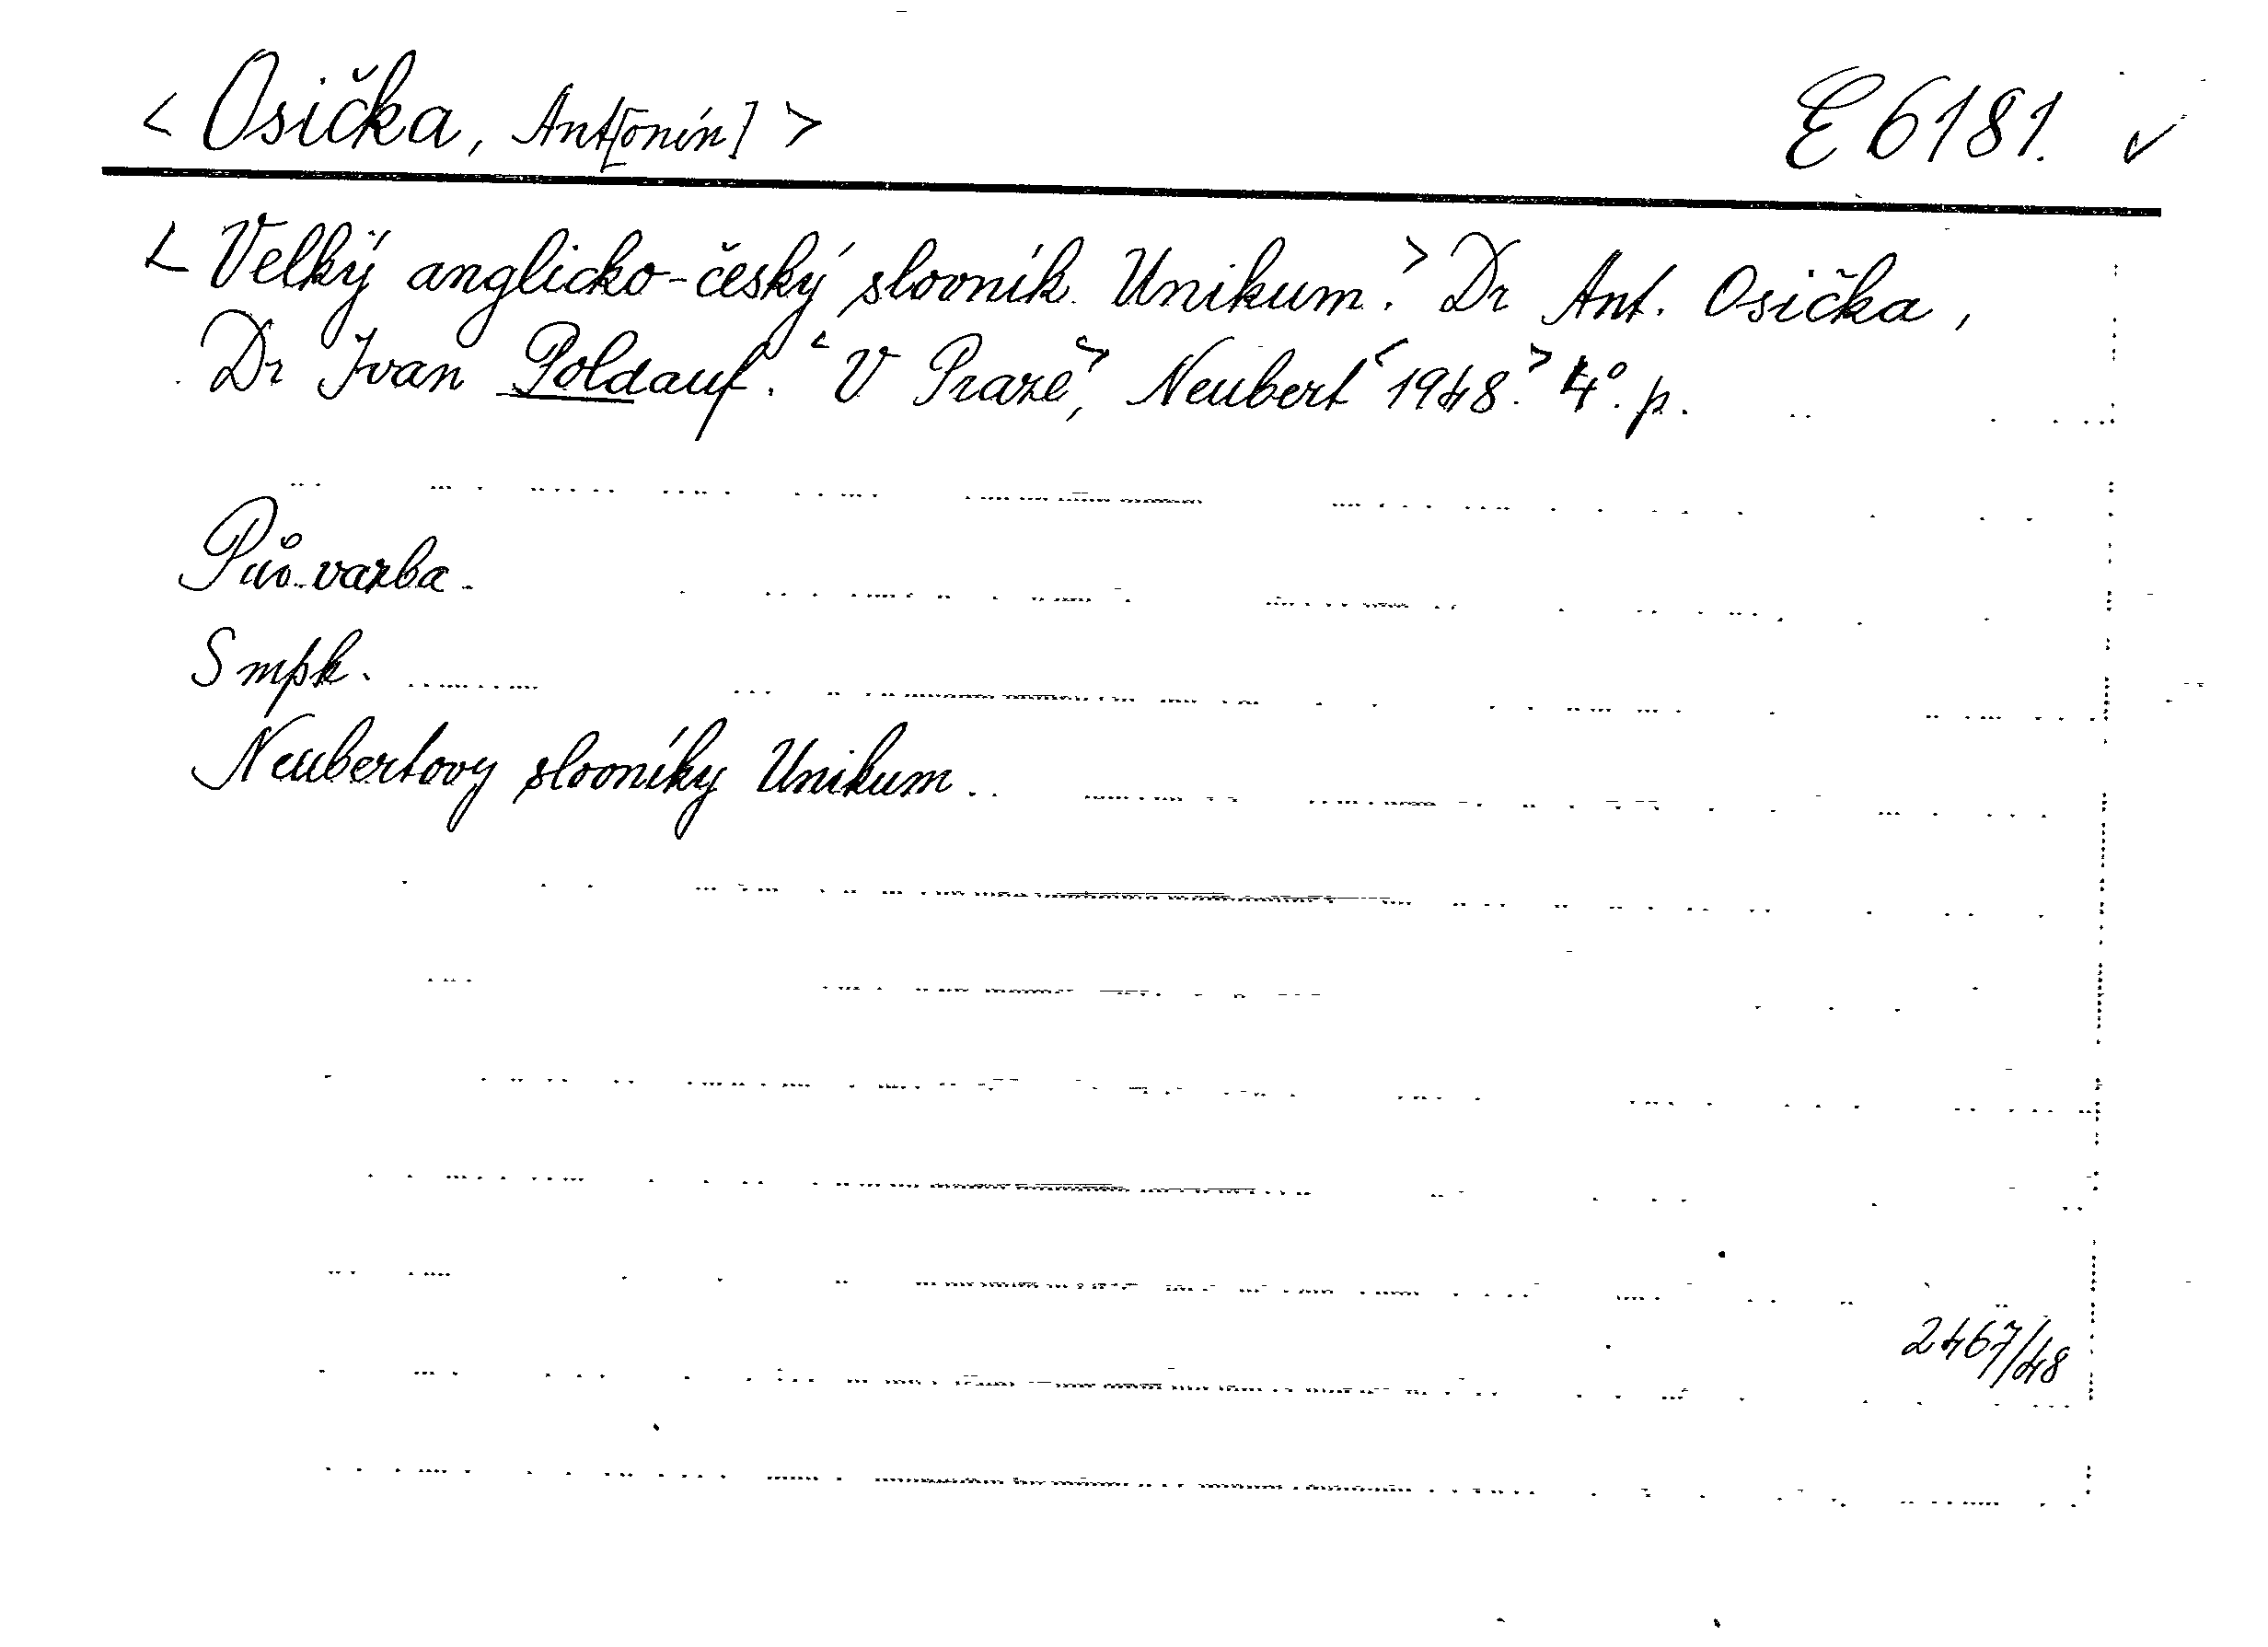 < Osička, Ant[onín] > E 6181. ✓
< Velký anglicko-český slovník Unikum. > Dr Ant. Osička,
Dr Ivan Poldauf. < V Praze, > Neubert < 1948. > 4°. p.
Pův. vazba.
S mpk.
Neubertovy slovníky Unikum.
2467/48